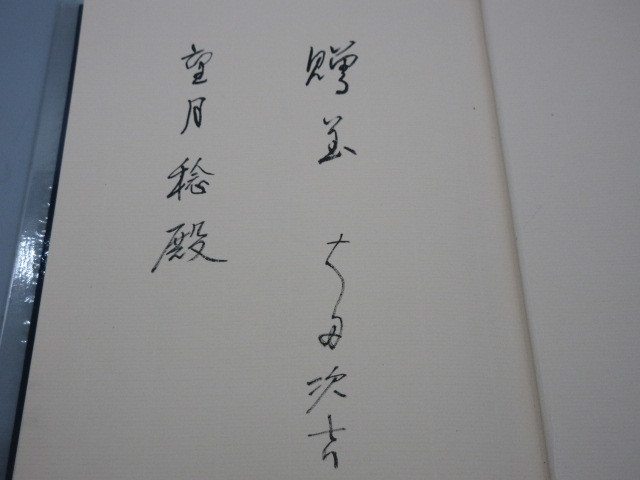 贈呈 太田次
望月稔殿